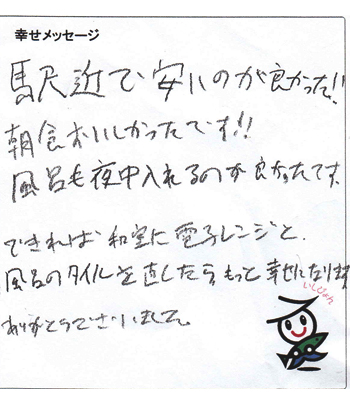 幸せメッセージ
駅近で安いのが良かった!!
朝食おいしかったです!!
風呂も夜中入れるのが良かったです。
できれば和室に電子レンジと、
風呂のタイルを直したらもっと幸せになります
ありがとうございました。